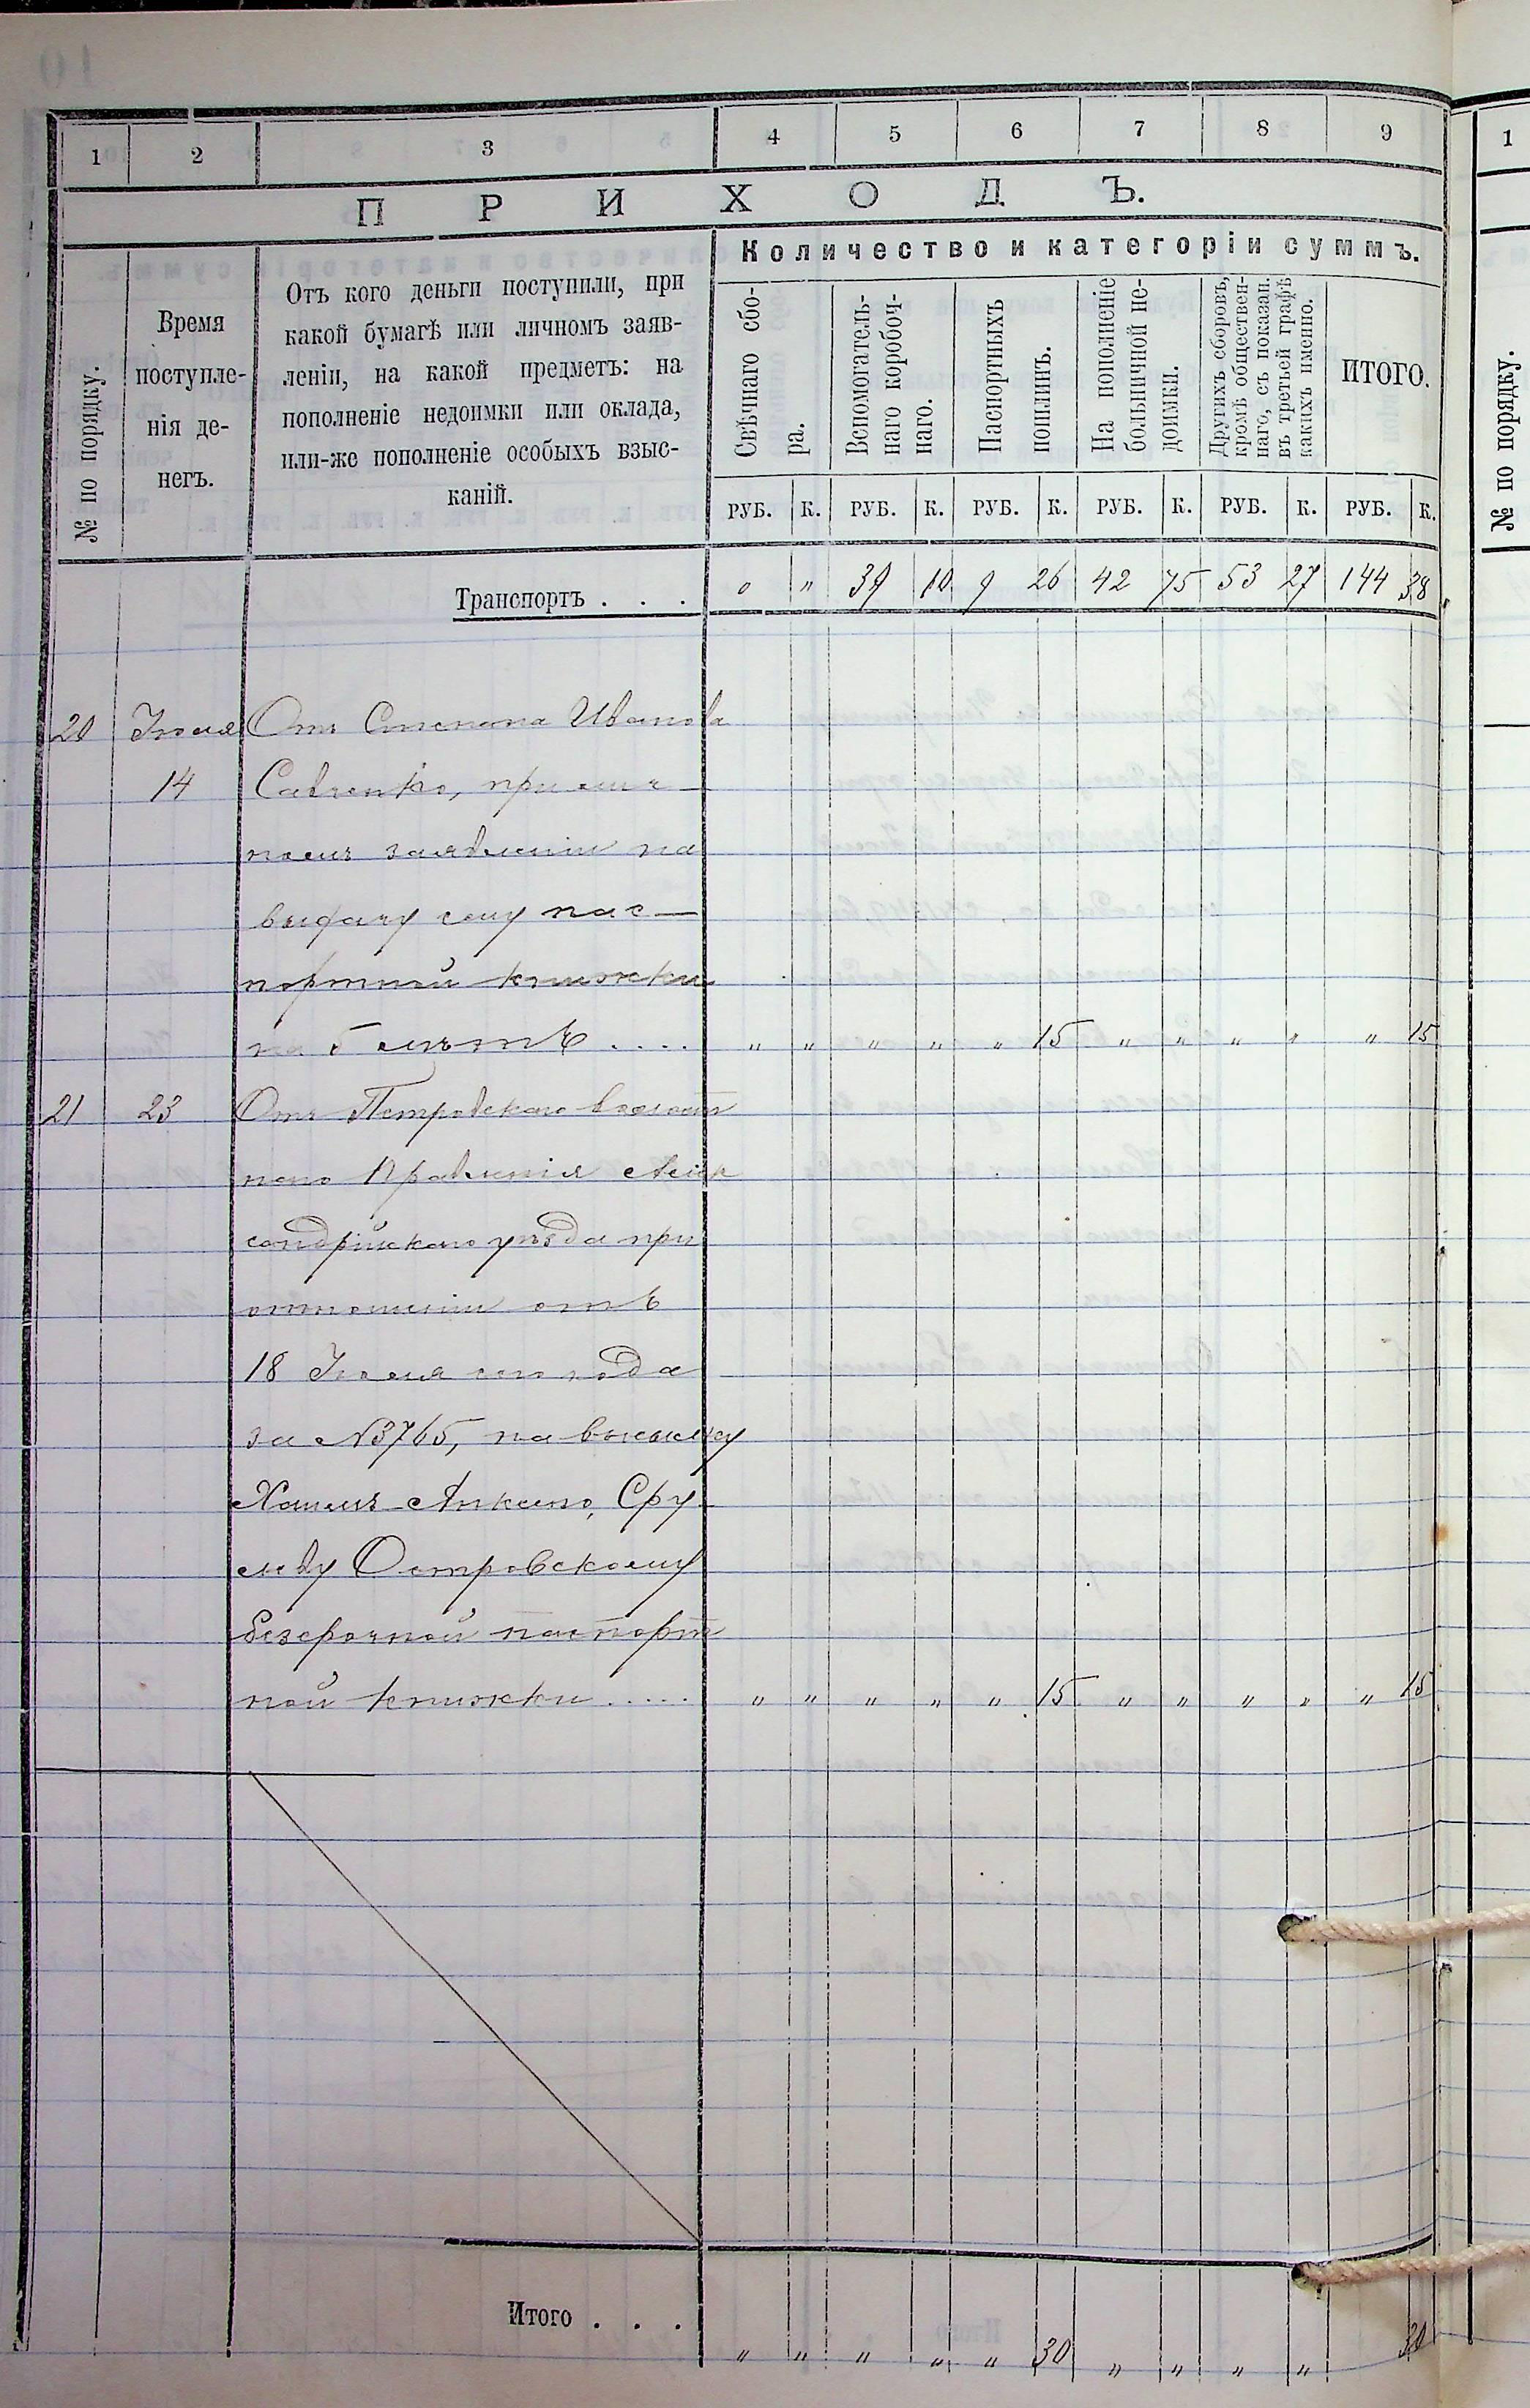 1 2 3 4 5 6 7 8 9
ПРИХОДЪ.
№ по порядку.
Время
поступле-
нія де-
негъ.
Отъ кого деньги поступили, при
какой бумагѣ или личномъ заяв-
леніи, на какой предметъ: на
пополненіе недоимки или оклада,
или-же пополненіе особыхъ взыс-
каній.
Количество и категоріи суммъ.
Свѣчнаго сбо-
ра.
Вспомогатель-
наго коробоч-
наго.
Паспортныхъ
пошлинъ.
На пополненіе
больничной не-
доимки.
Другихъ сборовъ,
кромѣ обществен-
наго, съ показан.
въ третьей графѣ
какихъ именно.
ИТОГО.
РУБ. К. РУБ. К. РУБ. К. РУБ. К. РУБ. К. РУБ. К.
Транспортъ . . . " " 39 10 9 26 42 75 53 27 144 38
20 Іюля Отъ Степана Иванова
14 Савченко, при лич-
номъ заявленіи на
выдачу ему пас-
портной книжки
на 5 лѣтъ .... " " " " " 15 " " " " " 15
21 23 Отъ Петровскаго волост
ного Правленія Алек
сандрійскаго уѣзда при
отношеніи отъ
18 Іюля сего года
за №3765, на высылку
Хаимъ Сру
Островскому
безсрочной паспорт
ной книжки ..... " " " " " 15 " " " " " 15
Итого . . .
" " " " " 30 " " " " 30
1
№ по порядку.